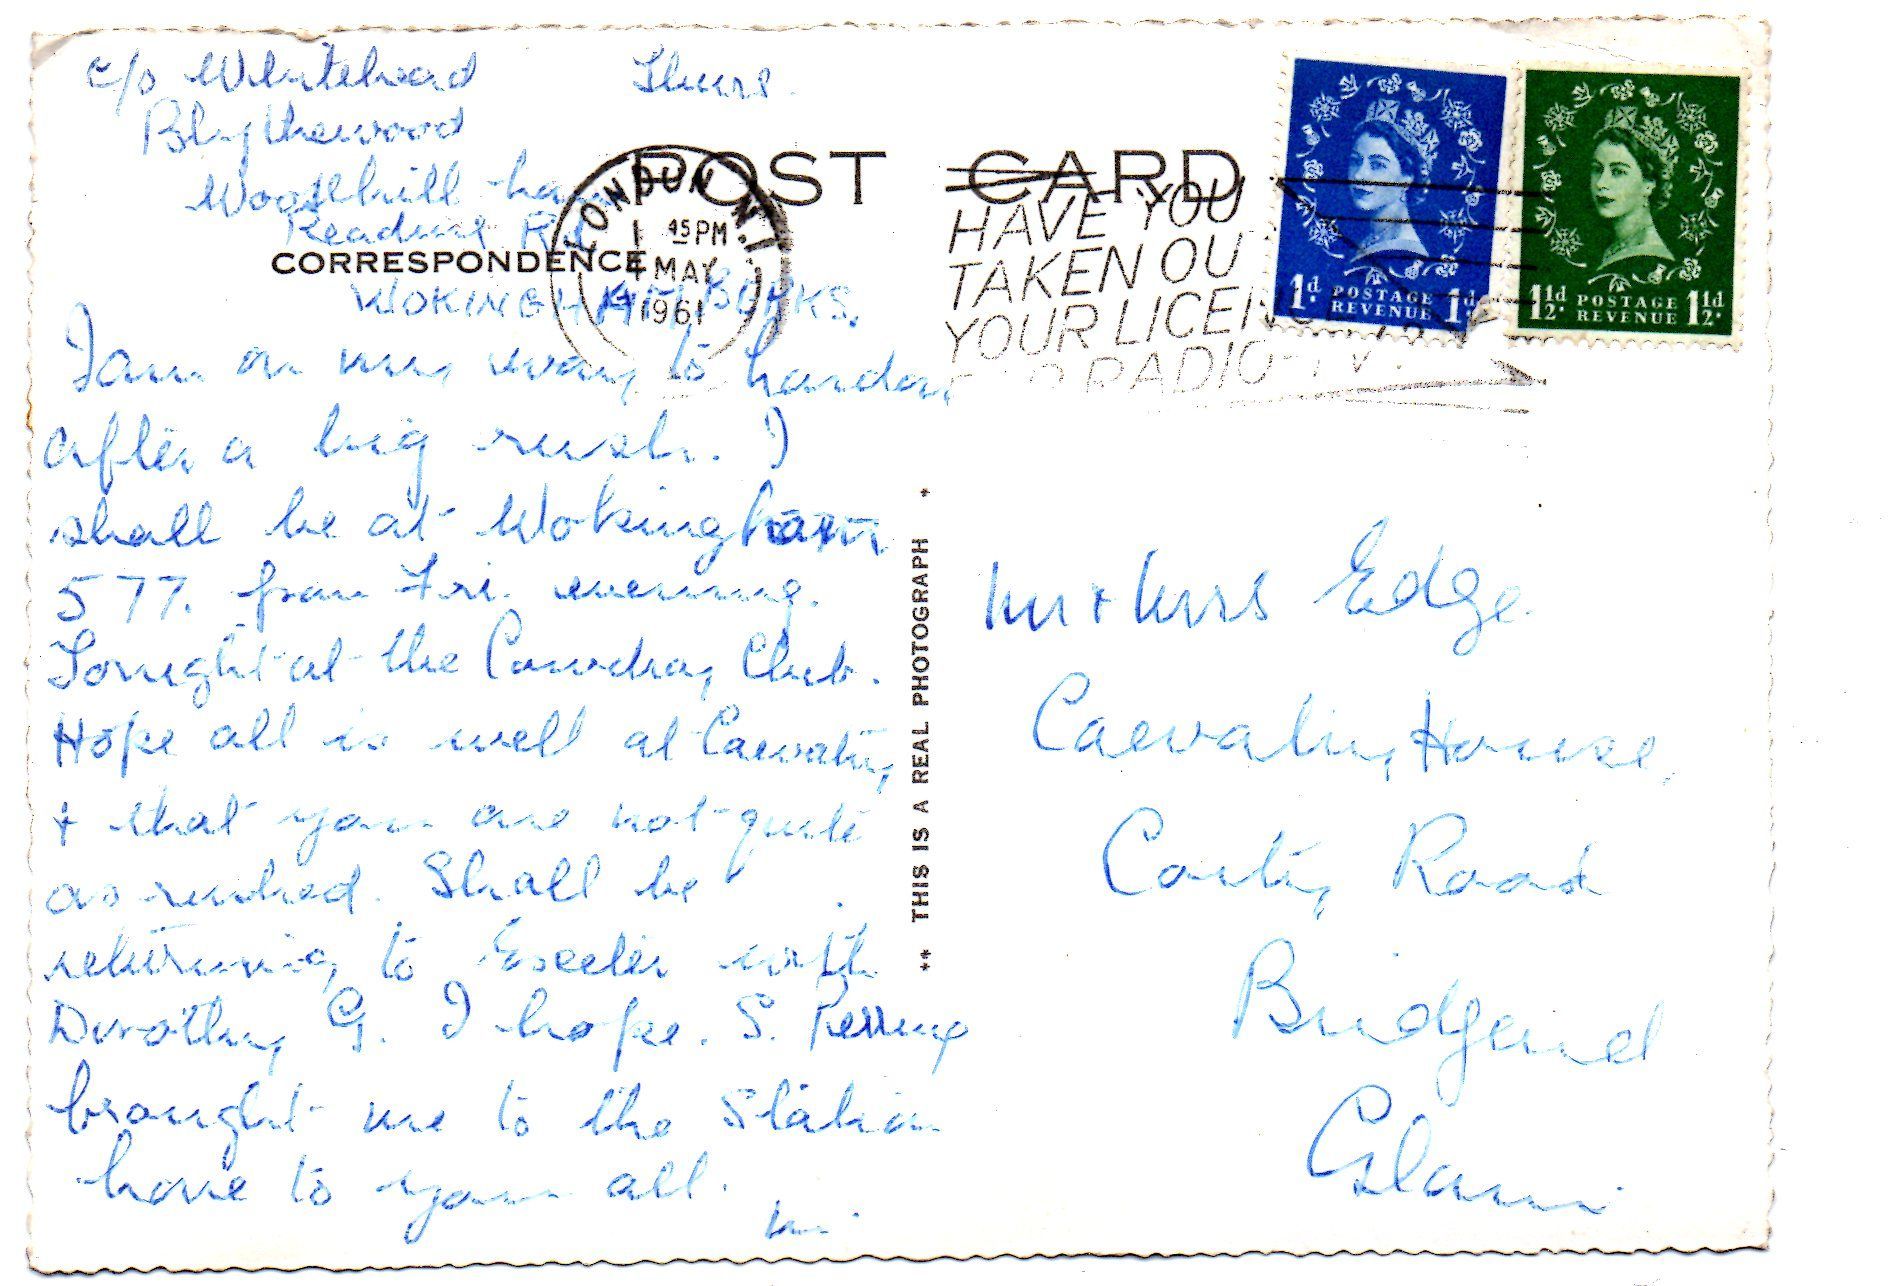 c/o Whitehead Thurs.
Blythewood
Woodhill Lane
Reading Rd
WOKINGHAM BERKS.
POST CARD
CORRESPONDENCE
LONDON N.1
1 45 PM
4 MAY
1961
HAVE YOU
TAKEN OU
YOUR LICEN
RADIO-TV.
1d. POSTAGE 1d.
REVENUE
1½d. POSTAGE 1½d.
REVENUE
I am on my way to London
after a big rush. I
shall be at Wokingham
577. from Fri. evening.
Tonight at the Cowdray Club.
Hope all is well at Caewatty
+ that you are not quite
as rushed. Shall be
returning to Exeter with
Dorothy G. I hope. S.
brought me to the Station
Love to you all.
M.
** THIS IS A REAL PHOTOGRAPH *
Mr + Mrs Edge
House,
Coity Road
Bridgend
Glam.